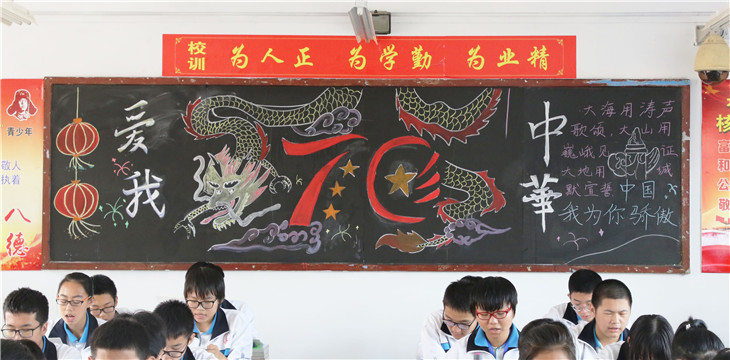 校训 为人正 为学勤 为业精
青少年
敬人
执着
八
德
爱
我
70
中
華
大海用涛声
歌颂，大山用
巍峨见证
大地用 诚
默宣誓，中国，
我为你骄傲
核
富
和
公
敬